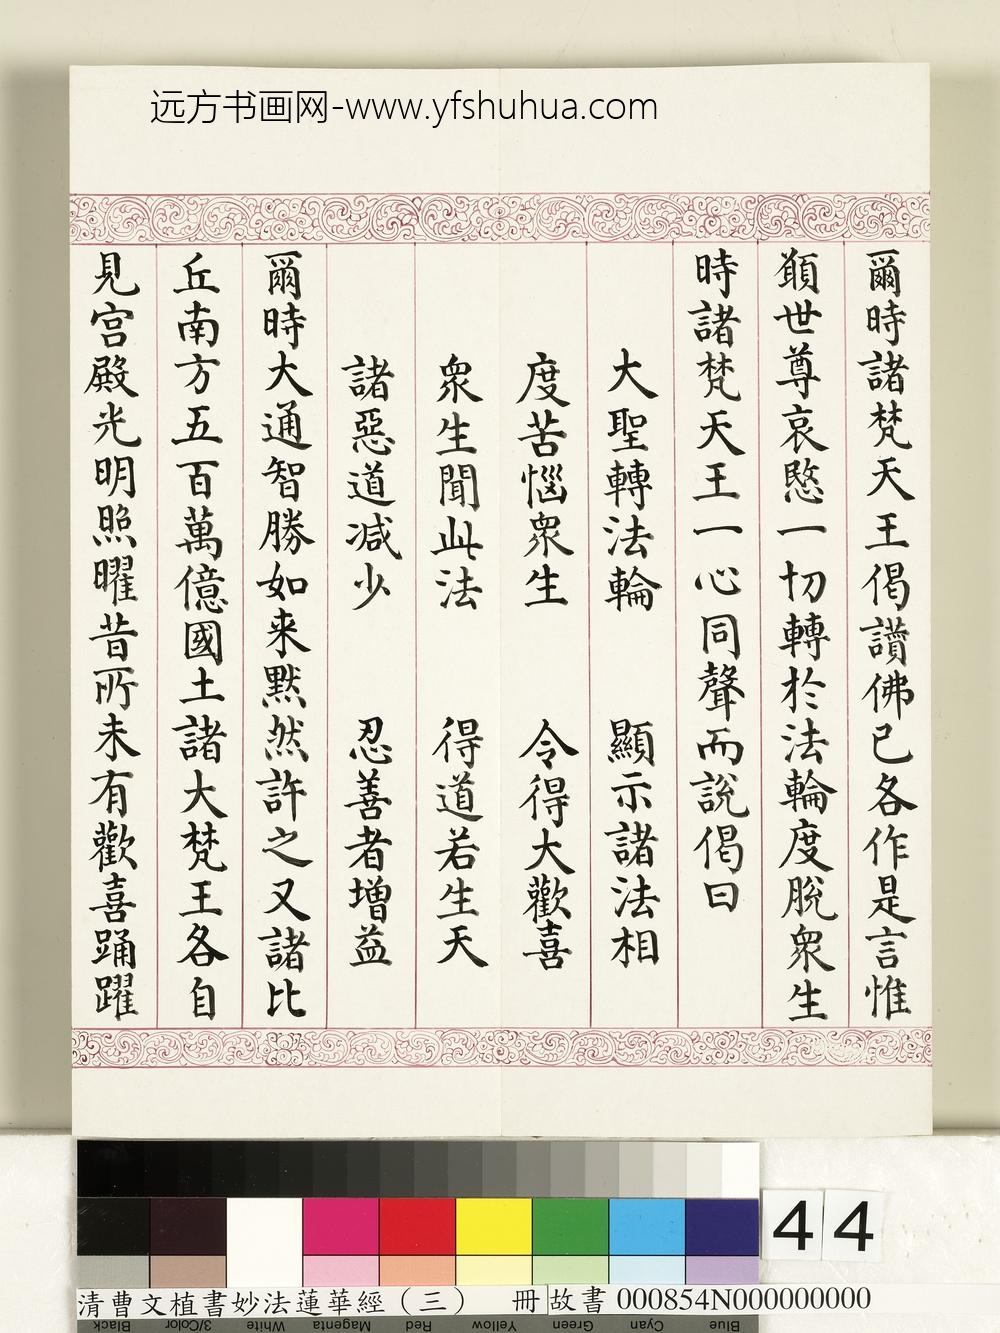 远方书画网-www.yfshuhua.com
爾時諸梵天王偈讚佛已各作是言惟
願世尊哀愍一切轉於法輪度脫衆生
時諸梵天王一心同聲而說偈曰
大聖轉法輪　顯示諸法相
度苦惱衆生　令得大歡喜
衆生聞此法　得道若生天
諸惡道減少　忍善者增益
爾時大通智勝如來黙然許之又諸比
丘南方五百萬億國土諸大梵王各自
見宮殿光明照曜昔所未有歡喜踊躍
44
清曹文植書妙法蓮華經（三）　冊 故書 000854N000000000
Black 3/Color White Magenta Red Yellow Green Cyan Blue